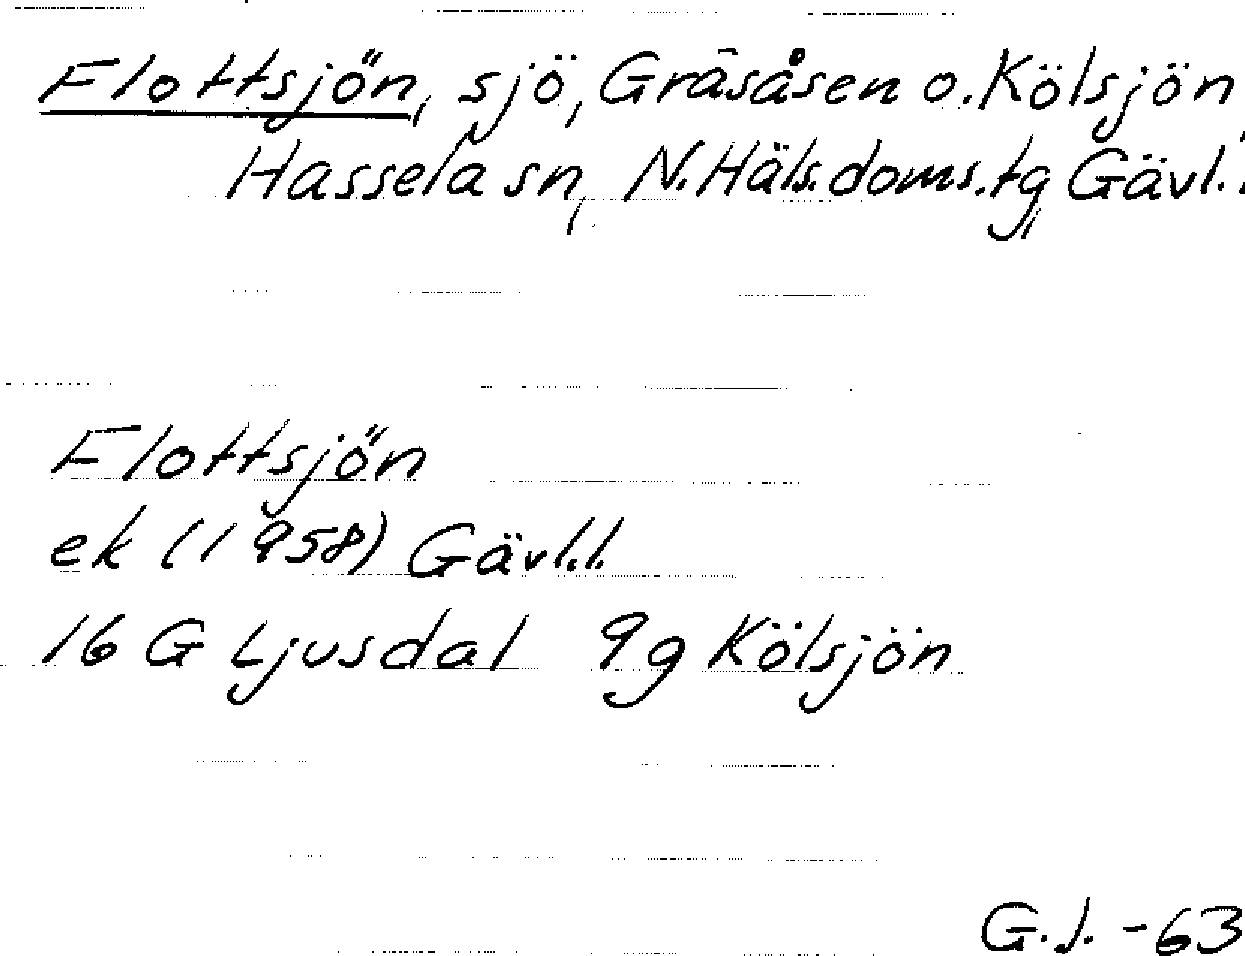 Flottsjön, sjö, Gräsåsen o. Kölsjön,
Hassela sn, N. Häls. doms. tg, Gävl. l.
Flottsjön
ek (1958) Gävl.l.
16 G Ljusdal 9g Kölsjön
G.J. -63